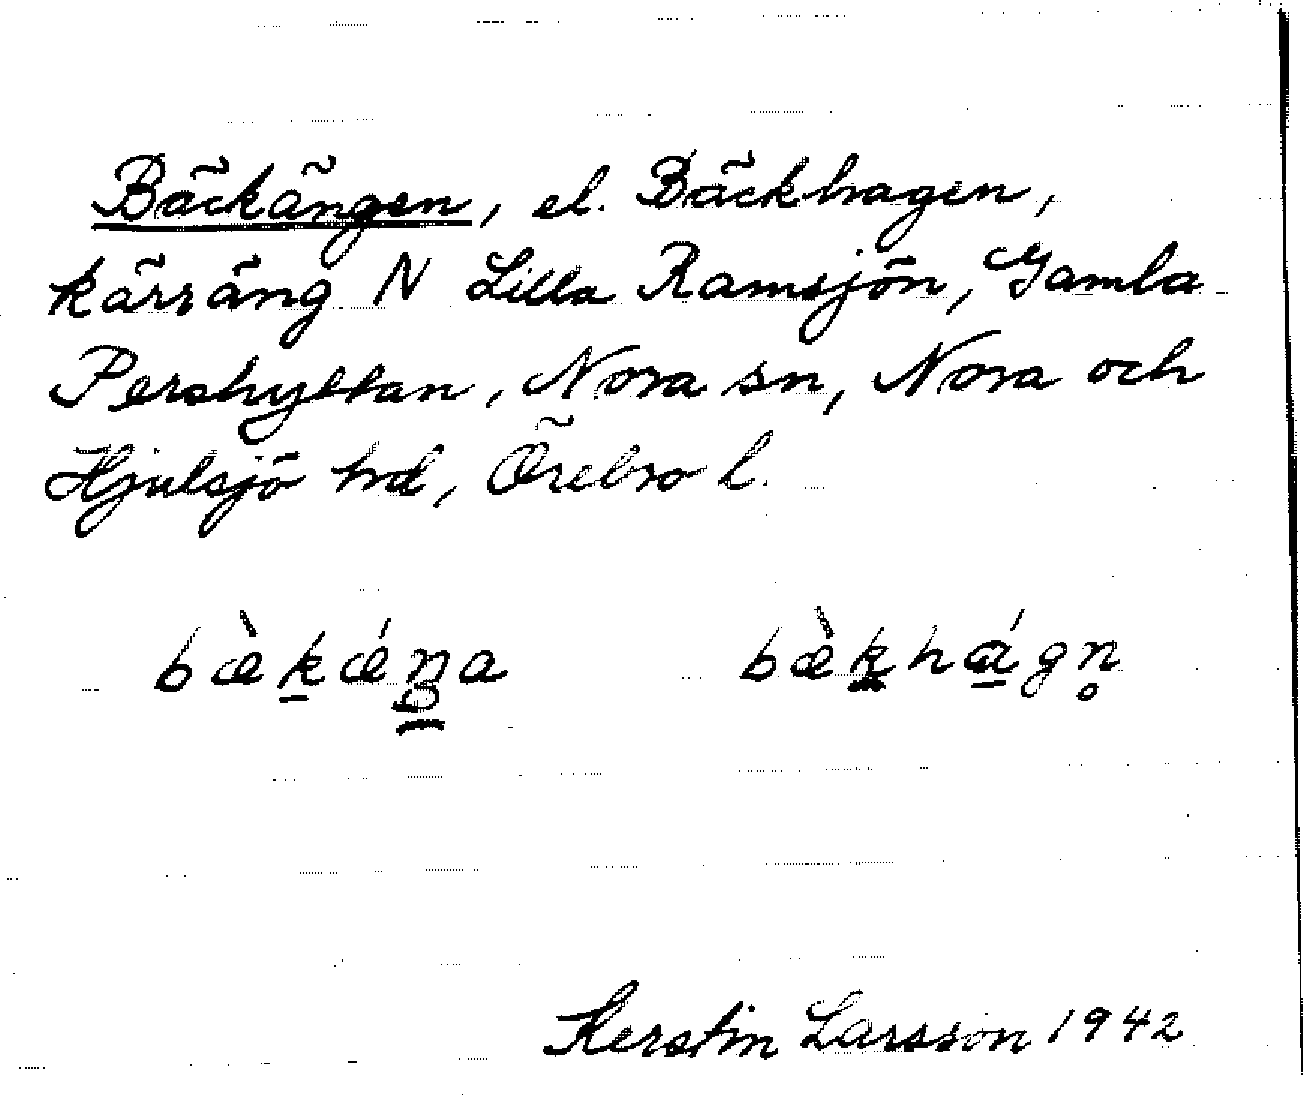 Bäckängen, el. Bäckhagen,
kärräng N Lilla Ramsjön, Gamla
Pershyttan, Nora sn, Nora och
Hjulsjö hd, Örebro l.
bæ̀ḵǽŋ̳a bæ̀ḵhá̱gn̥
Kerstin Larsson 1942